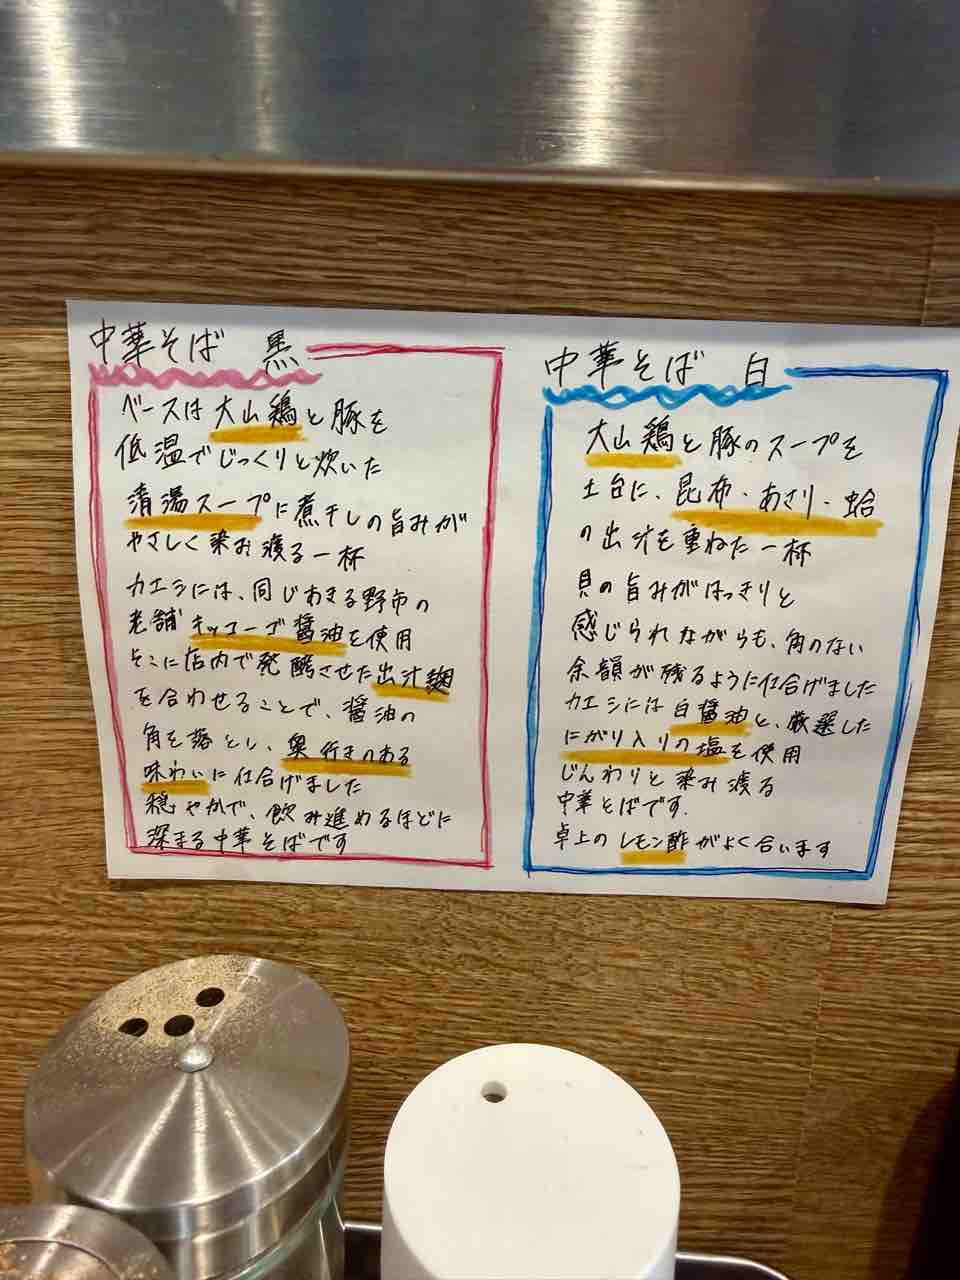 中華そば 黒
ベースは大山鶏と豚を
低温でじっくりと炊いた
清湯スープに煮干しの旨みが
やさしく染み渡る一杯
カエシには、同じあきる野市の
老舗キッコーゴ醤油を使用
そこに店内で発酵させた出汁麹
を合わせることで、醤油の
角を落とし、奥行きのある
味わいに仕合げました
穏やかで、飲み進めるほどに
深まる中華そばです
中華そば 白
大山鶏と豚のスープを
土台に、昆布・あさり・蛤
の出汁を重ねた一杯
貝の旨みがはっきりと
感じられながらも、角のない
余韻が残るように仕合げました
カエシには白醤油と、厳選した
にがり入りの塩を使用
じんわりと染み渡る
中華そばです.
卓上のレモン酢がよく合います